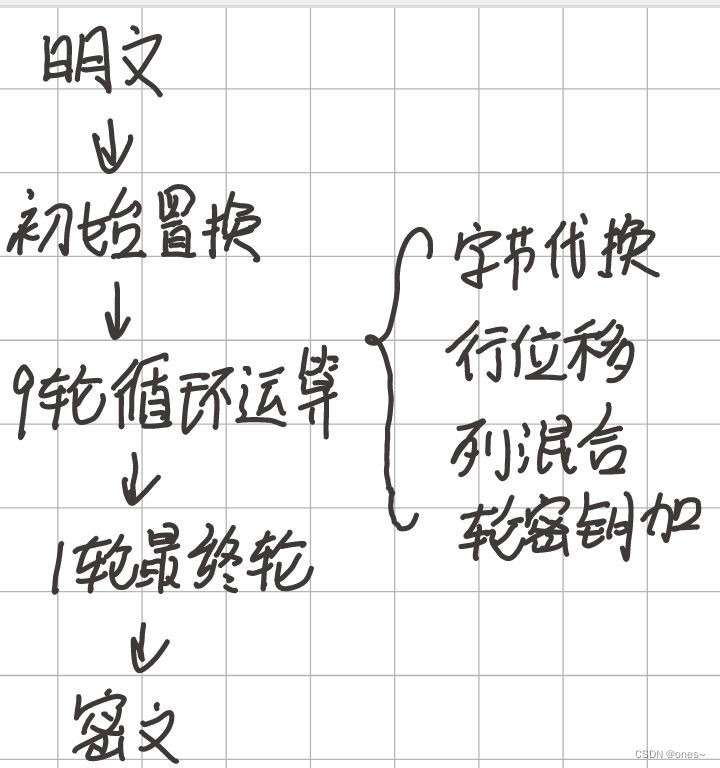 明文
初始置换
9轮循环运算
1轮最终轮
密文
字节代换
行位移
列混合
轮密钥加
CSDN @ones~